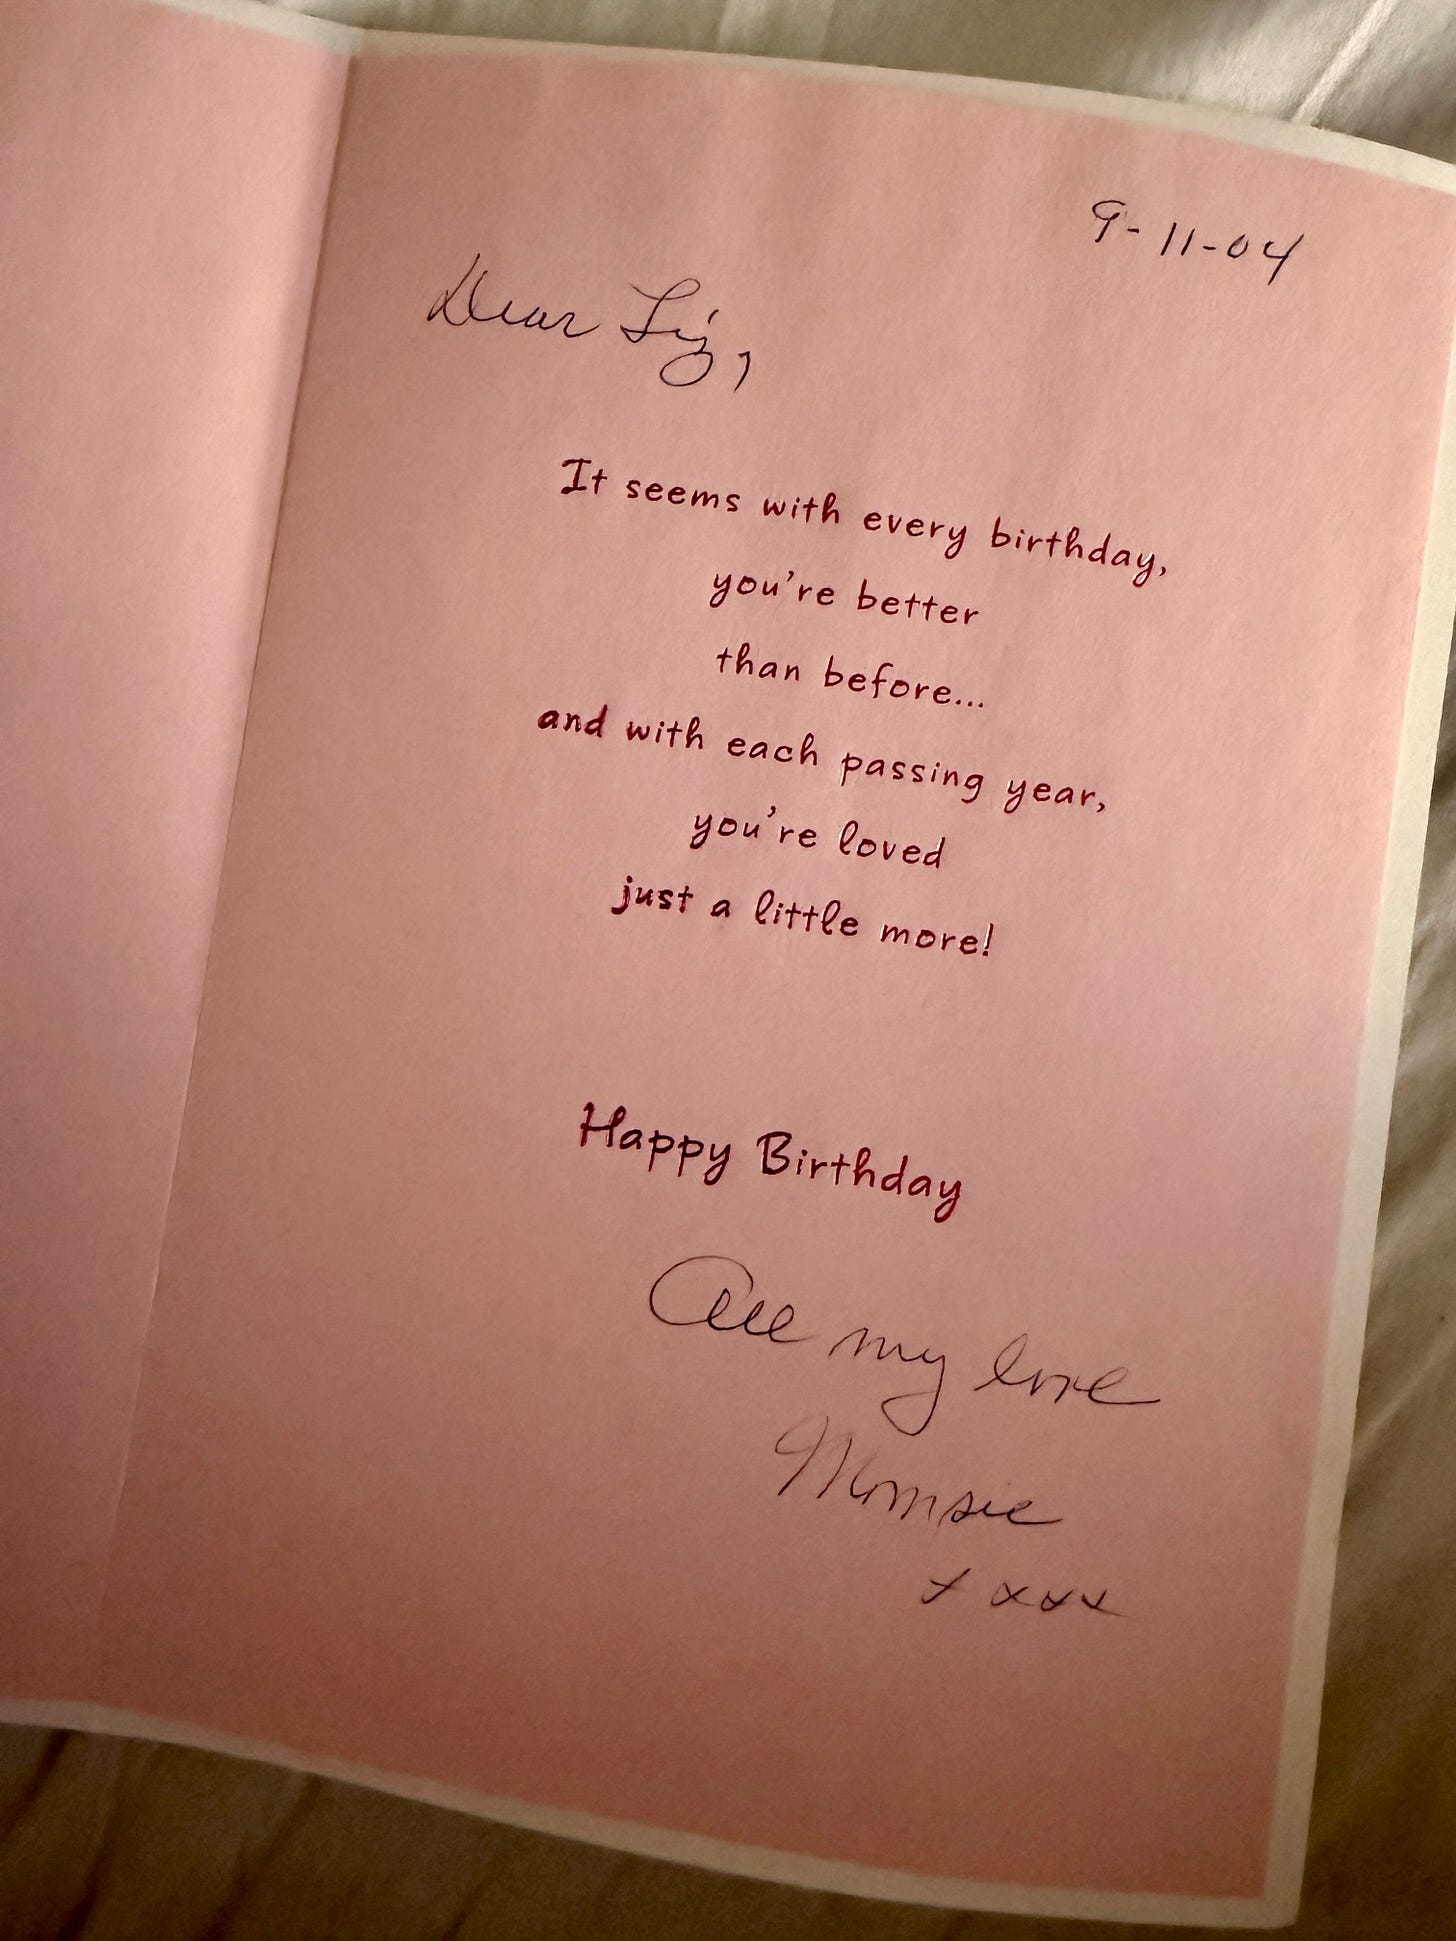 9-11-04
Dear Liz,
It seems with every birthday,
you're better
than before...
and with each passing year,
you're loved
just a little more!
Happy Birthday
All my love
Momsie
xxxx